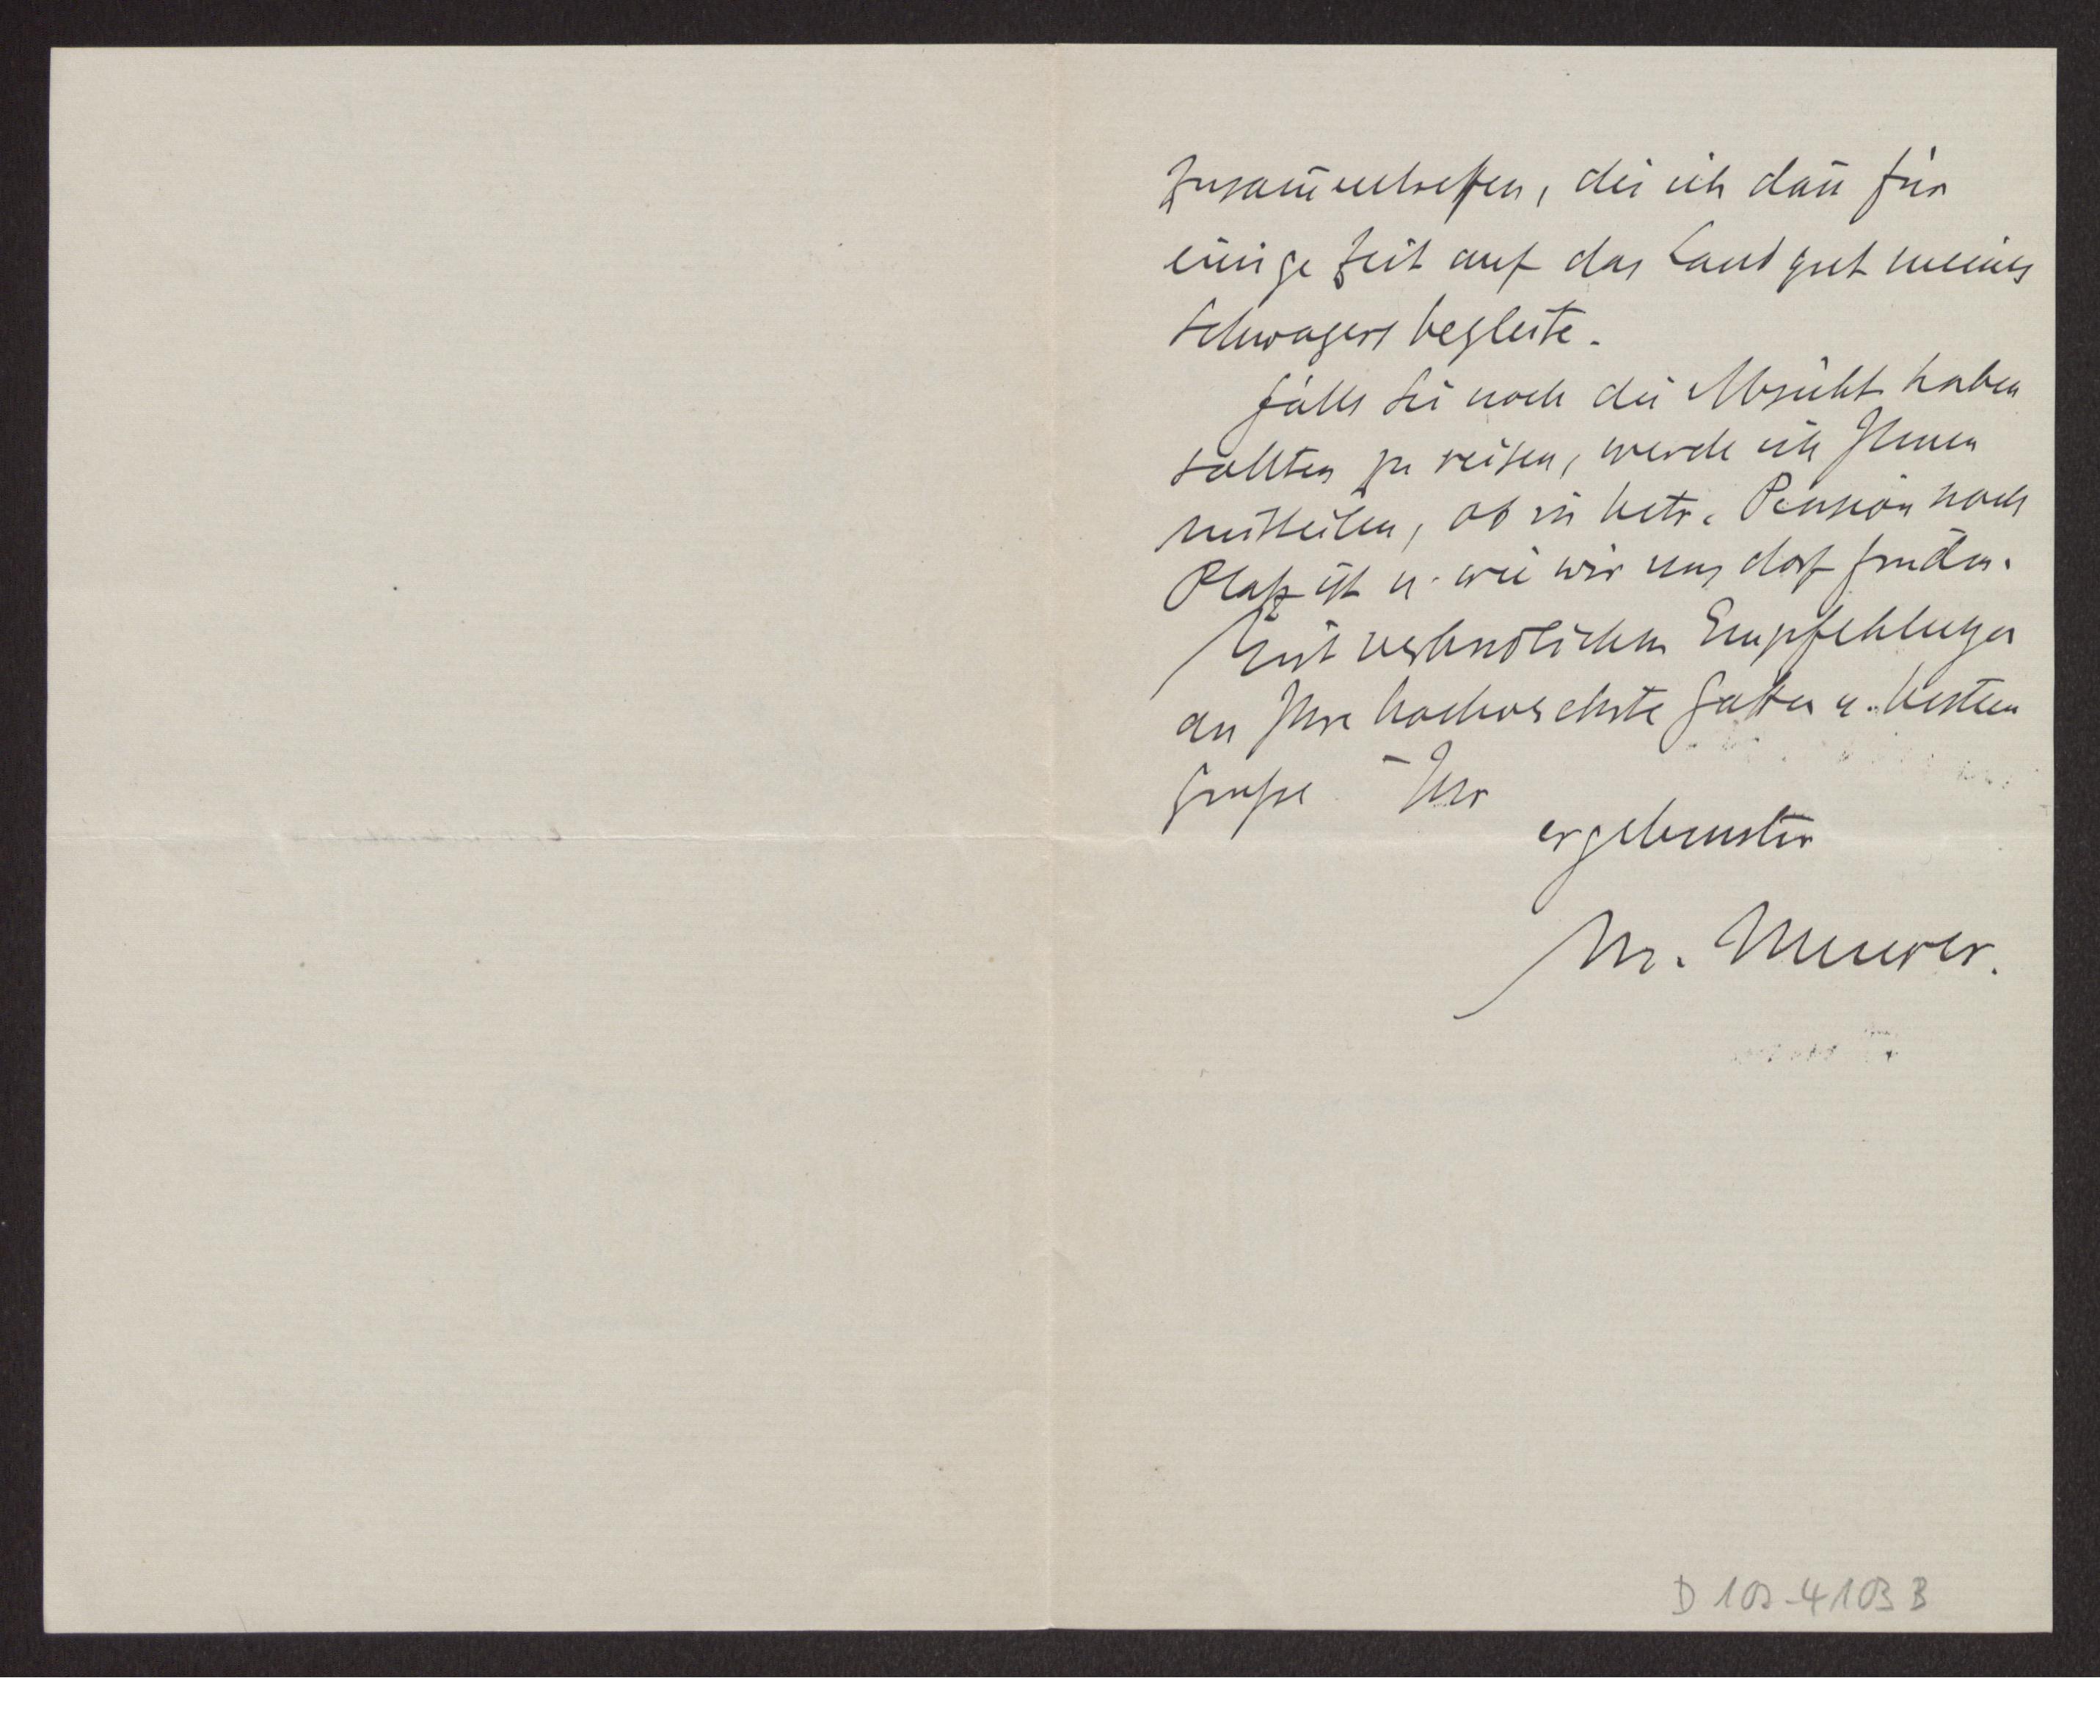 zusam̅entreffen, die ich dan̅ für
einige Zeit auf das Landgut meines
Schwagers begleite.
Falls Sie noch die Absicht haben
sollten zu reisen, werde ich Ihnen
mitteilen, ob in betr. Pension noch
Platz ist u. wie wir uns dort finden.
Mit verbindlichen Empfehlungen
an Ihre hochverehrte Gattin u. besten
Grusse Ihr
ergebenster
M. Meurer.
D 102-4103 B